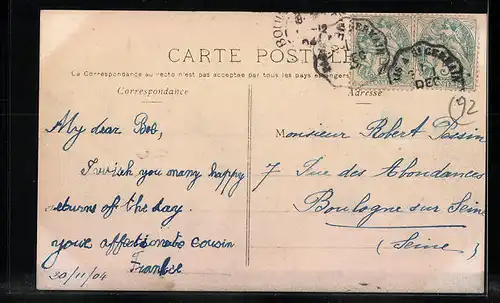 CARTE POSTALE
La Correspondance au recto n'est pas acceptée par tous les pays étrangers
Correspondance
Adresse
(92
My dear Bob,
I wish you many happy
returns of the day.
your affectionate cousin
20/11/04
Monsieur Robert Pessin
7 Rue des Abondances
Boulogne sur Seine
(Seine)
DEC